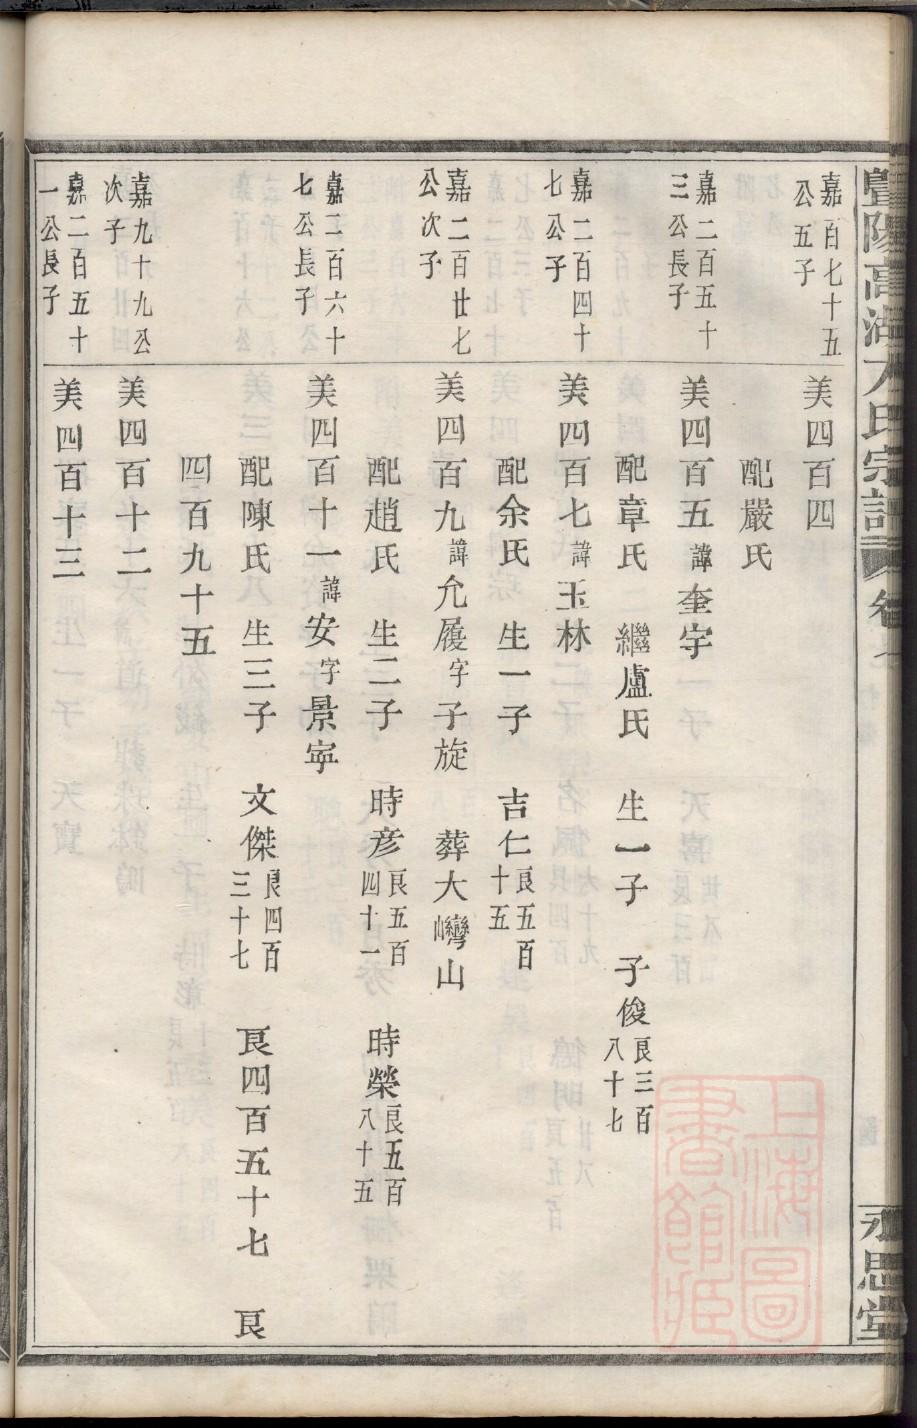 暨陽高湖方氏宗譜 卷七
永思堂
嘉百七十五公五子
美四百四
配嚴氏
嘉二百五十三公長子
美四百五 諱奎宇
配章氏 繼盧氏 生一子 子俊 良三百八十七
嘉二百四十七公子
美四百七 諱玉林
配余氏 生一子 吉仁 良五百十五
嘉二百廿七公次子
美四百九 諱允履 字子旋 葬大巒山
配趙氏 生二子 時彥 良五百四十一 時榮 良五百八十五
嘉二百六十七公長子
美四百十一 諱安 字景寧
配陳氏 生三子 文傑 良四百三十七 良四百五十七 良
四百九十五
嘉九十九公次子
美四百十二
嘉二百五十一公長子
美四百十三
上海圖書館藏